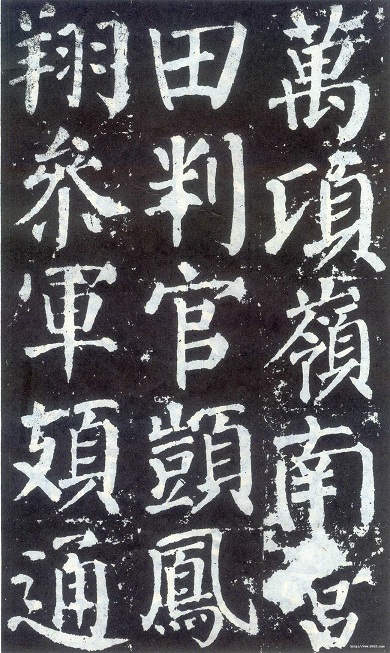 萬頃嶺南
田判官顗鳳
翔叅軍頍通